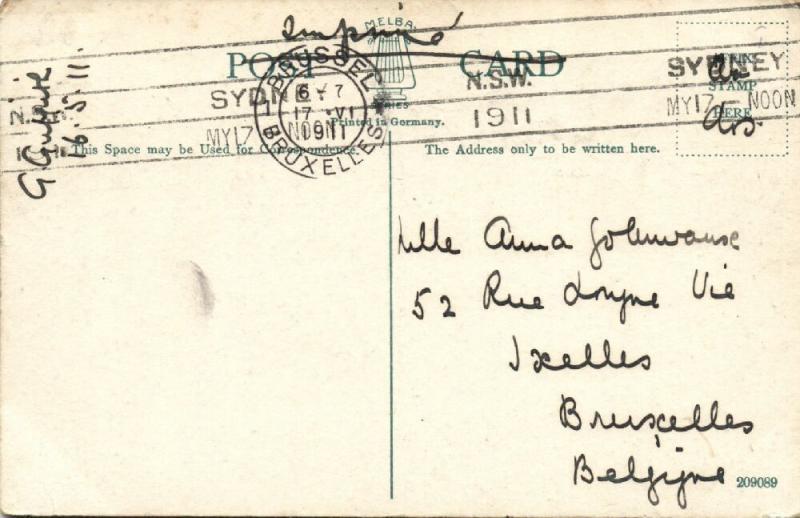 Imprimé
MELBA
POST CARD
SERIES
Printed in Germany.
SYDNEY
N.S.W.
MY17 NOON
1911
BRUSSEL
6-7
17 VI
1911
BRUXELLES
SYDNEY
MY17 NOON
STAMP
HERE
16.5.11.
This Space may be Used for Correspondence.
The Address only to be written here.
Mlle Anna
52 Rue Longue Vie
Ixelles
Bruxelles
Belgique
209089